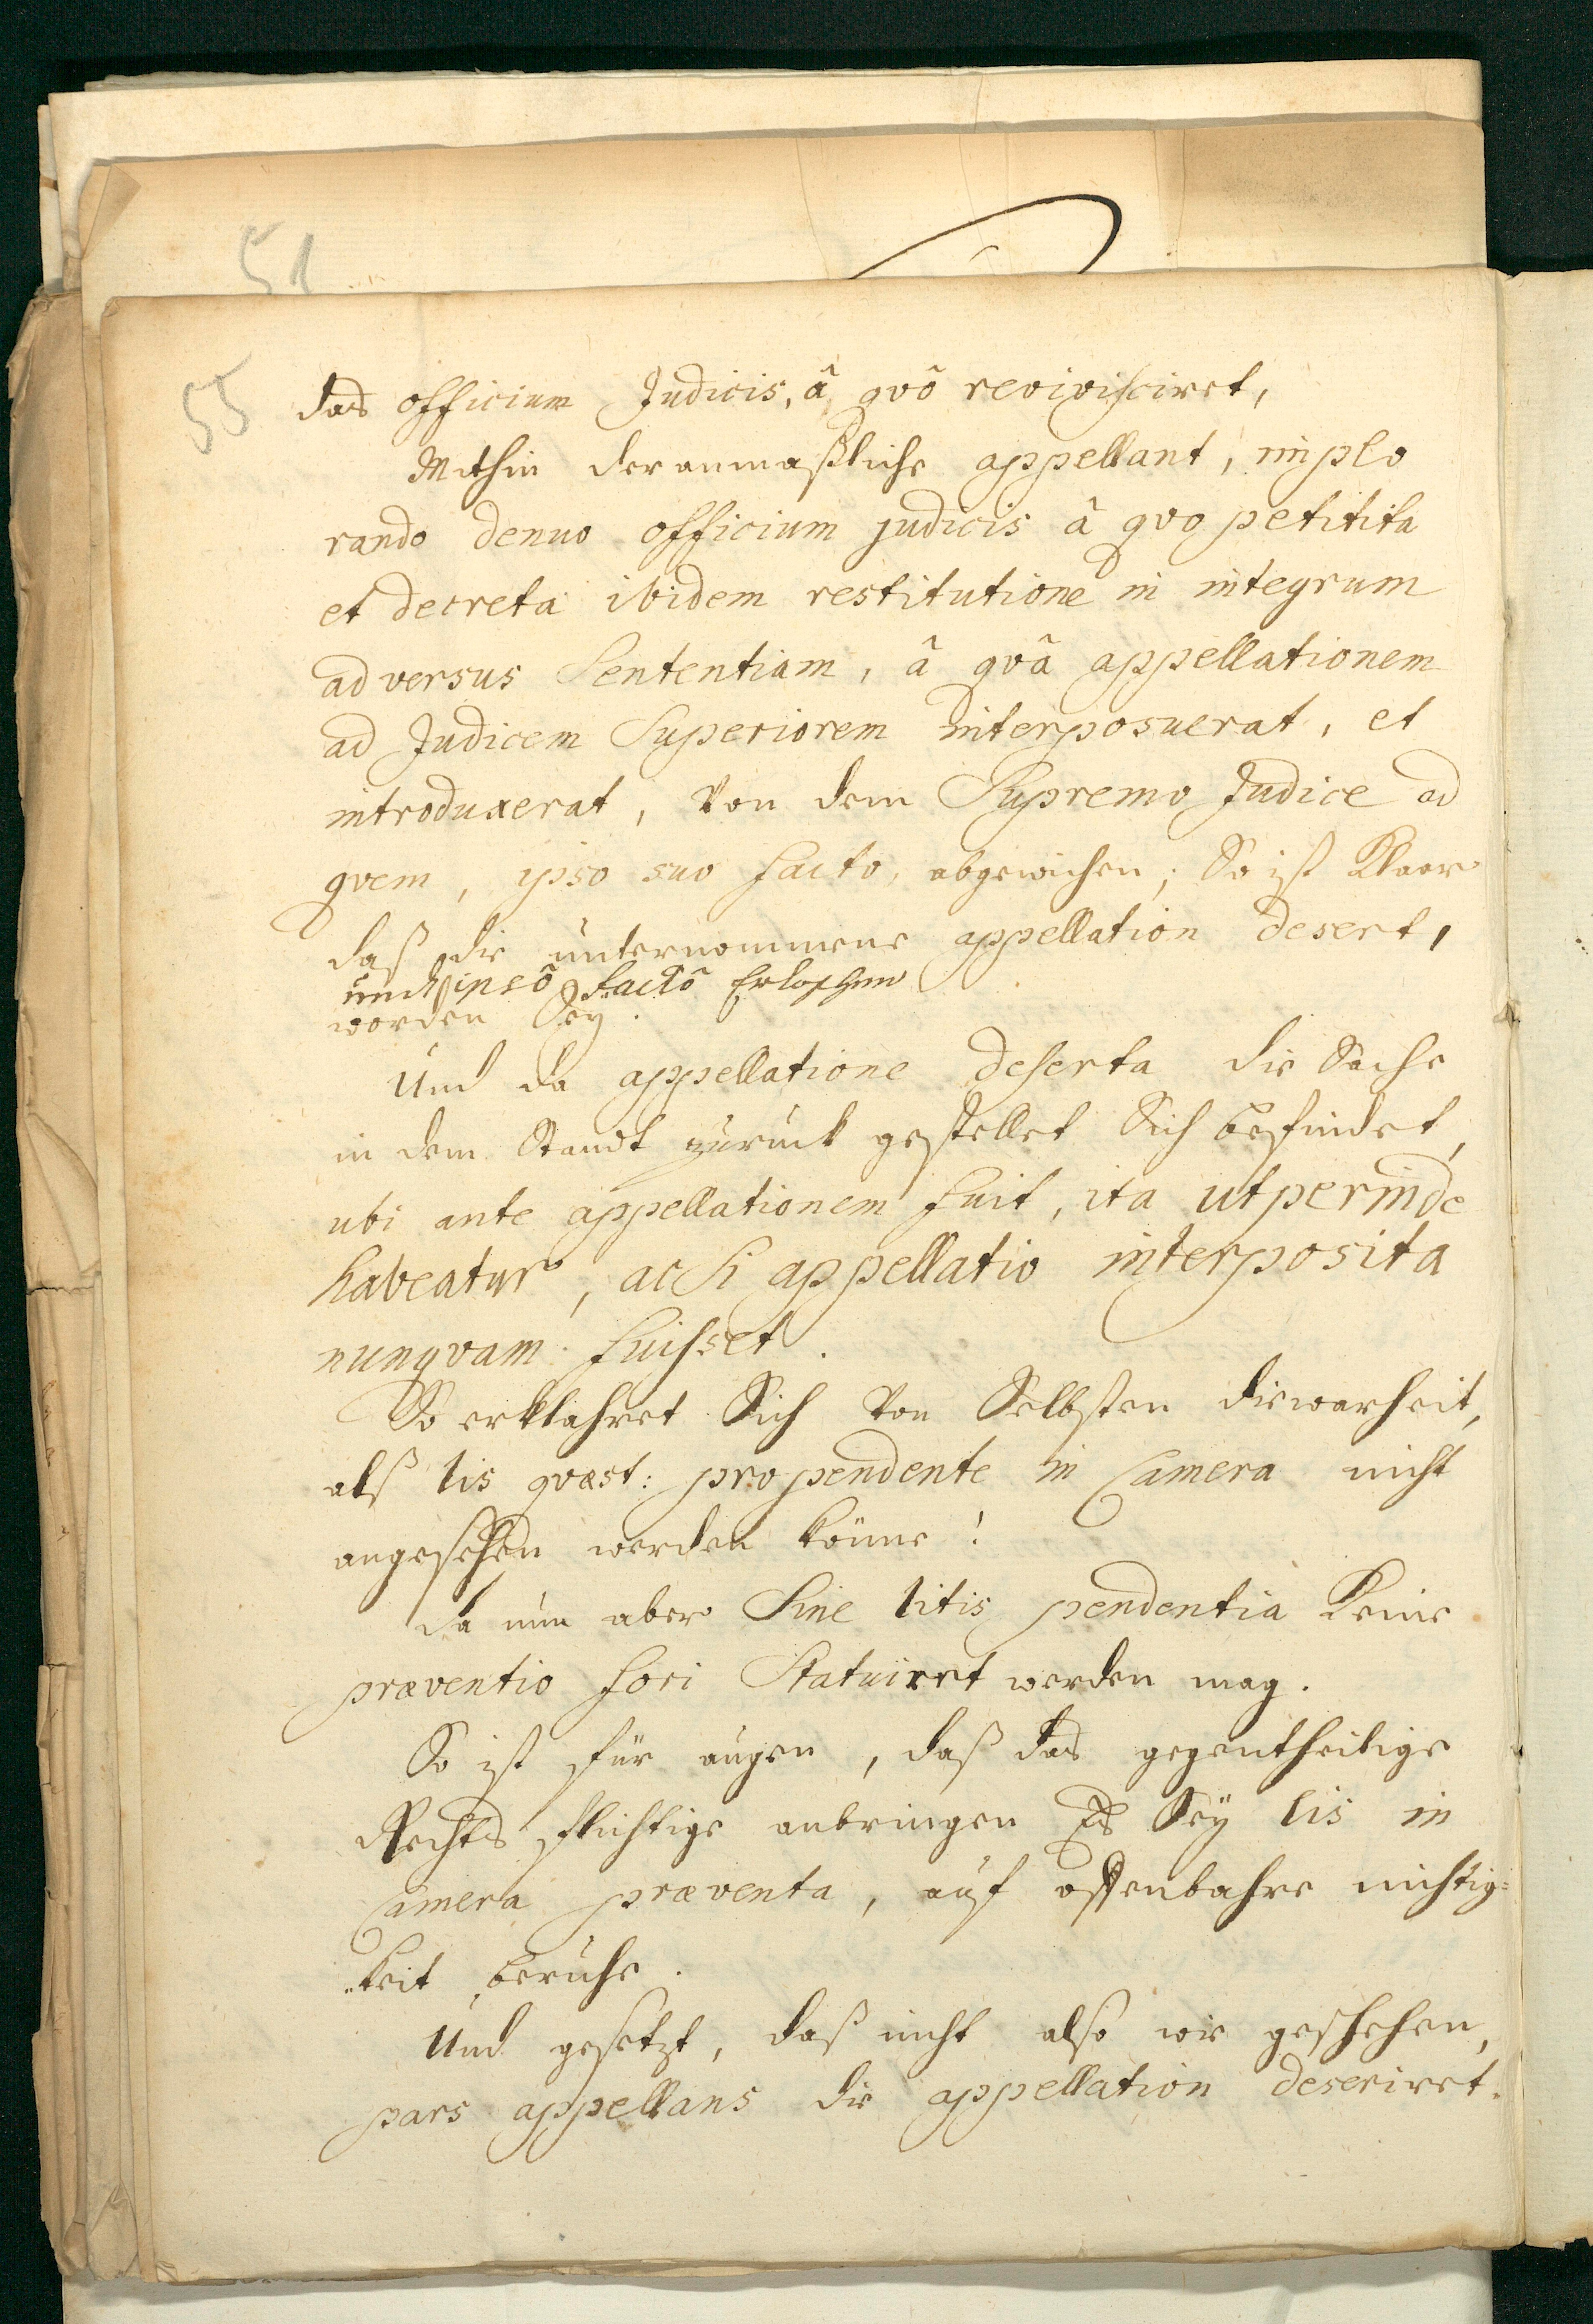 51
55
das officium Judicis, â qvô revivisciret,
Mithin der anmaßliche appellant, implo
rando denuo officium judicis â qvo petitita
et decreta ibidem restitutione in integrum
adversus Sententiam, â qvâ appellationem
ad Judicem Superiorem interposuerat, et
introduxerat, von dem Supremo Judice ad
qvem, ipso suo facto, abgewichen; So ist Klaar
daß die unternommene appellation desert,
und ipsô factô Erloschen
worden Sey.
Und da appellatione deserta die Sache
in dem Standt zuruck gestellet Sich befindet,
ubi ante appellationem fuit, ita ut perinde
habeatur, ac si appellatio interposita
nunqvam fuisset.
So erklahret Sich von Selbsten die warheit,
alß lis qvæst: pro pendente in Camera nicht
angesehen werden könne!
da nun aber Sine litis pendentia Keine
præventio fori Statuiret werden mag.
So ist für augen, daß das gegentheilige
Rechts flüchtige anbringen Es Sey lis in
Camera præventa, auf offenbahre nichtig=
=keit beruhe.
Und gesetzt, daß nicht also wie geschehen,
pars appellans die appellation deseriret.